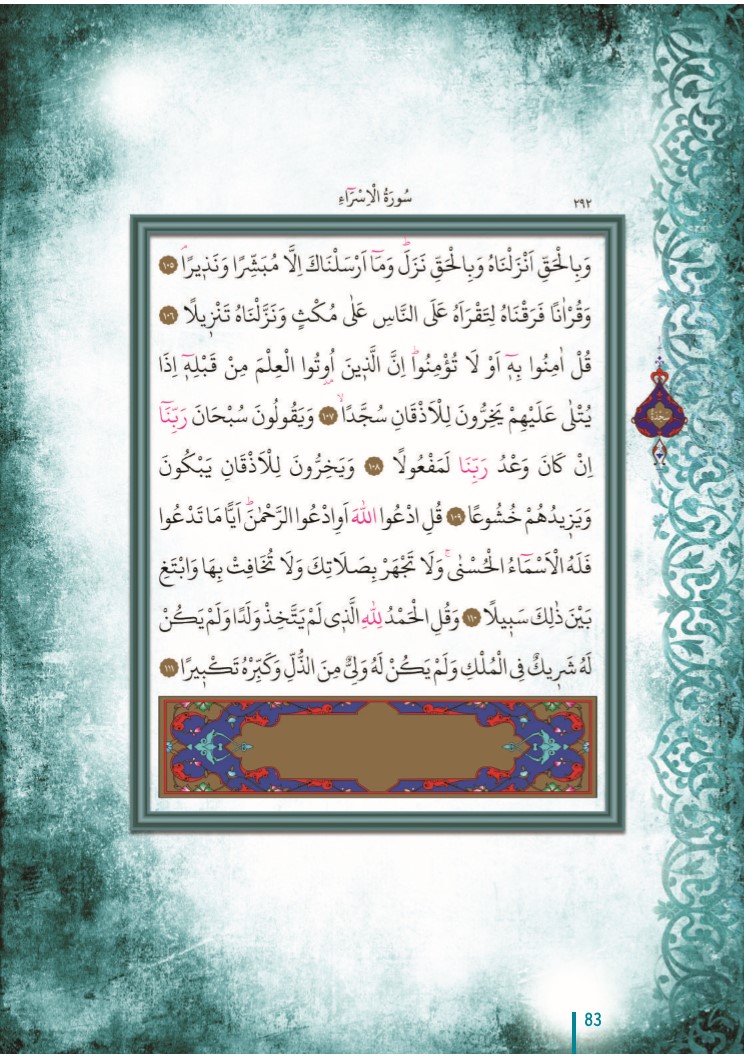 سُورَةُ الْاِسْرَٓاءِ ٢٩٢
وَبِالْحَقِّ اَنْزَلْنَاهُ وَبِالْحَقِّ نَزَلَۜ وَمَٓا اَرْسَلْنَاكَ اِلَّا مُبَشِّرًا وَنَذ۪يرًاۢ ﴿١٠٥﴾
وَقُرْاٰنًا فَرَقْنَاهُ لِتَقْرَاَهُ عَلَى النَّاسِ عَلٰى مُكْثٍ وَنَزَّلْنَاهُ تَنْز۪يلًا ﴿١٠٦﴾
قُلْ اٰمِنُوا بِه۪ٓ اَوْ لَا تُؤْمِنُواۜ اِنَّ الَّذ۪ينَ اُو۫تُوا الْعِلْمَ مِنْ قَبْلِه۪ٓ اِذَا
يُتْلٰى عَلَيْهِمْ يَخِرُّونَ لِلْاَذْقَانِ سُجَّدًاۙ ﴿١٠٧﴾ وَيَقُولُونَ سُبْحَانَ رَبِّنَٓا
سجدة
اِنْ كَانَ وَعْدُ رَبِّنَا لَمَفْعُولًا ﴿١٠٨﴾ وَيَخِرُّونَ لِلْاَذْقَانِ يَبْكُونَ
وَيَز۪يدُهُمْ خُشُوعًا ﴿١٠٩﴾ قُلِ ادْعُوا اللّٰهَ اَوِادْعُوا الرَّحْمٰنَۜ اَيًّا مَا تَدْعُوا
فَلَهُ الْاَسْمَٓاءُ الْحُسْنٰىۚ وَلَا تَجْهَرْ بِصَلَاتِكَ وَلَا تُخَافِتْ بِهَا وَابْتَغِ
بَيْنَ ذٰلِكَ سَب۪يلًا ﴿١١٠﴾ وَقُلِ الْحَمْدُ لِلّٰهِ الَّذ۪ي لَمْ يَتَّخِذْ وَلَدًا وَلَمْ يَكُنْ
لَهُ شَر۪يكٌ فِي الْمُلْكِ وَلَمْ يَكُنْ لَهُ وَلِيٌّ مِنَ الذُّلِّ وَكَبِّرْهُ تَكْب۪يرًا ﴿١١١﴾
83